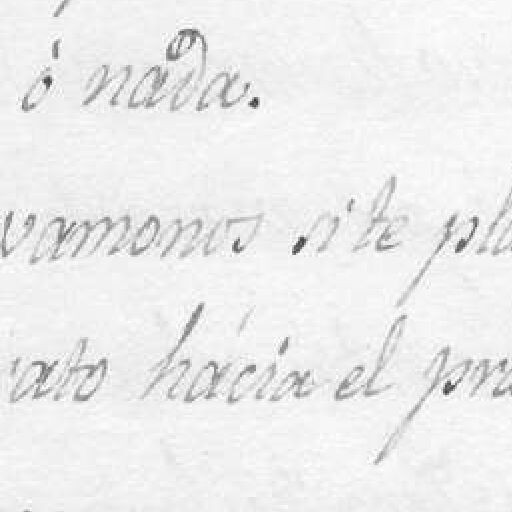 ó nada.
vamonos si te pla
ato hácia el pra